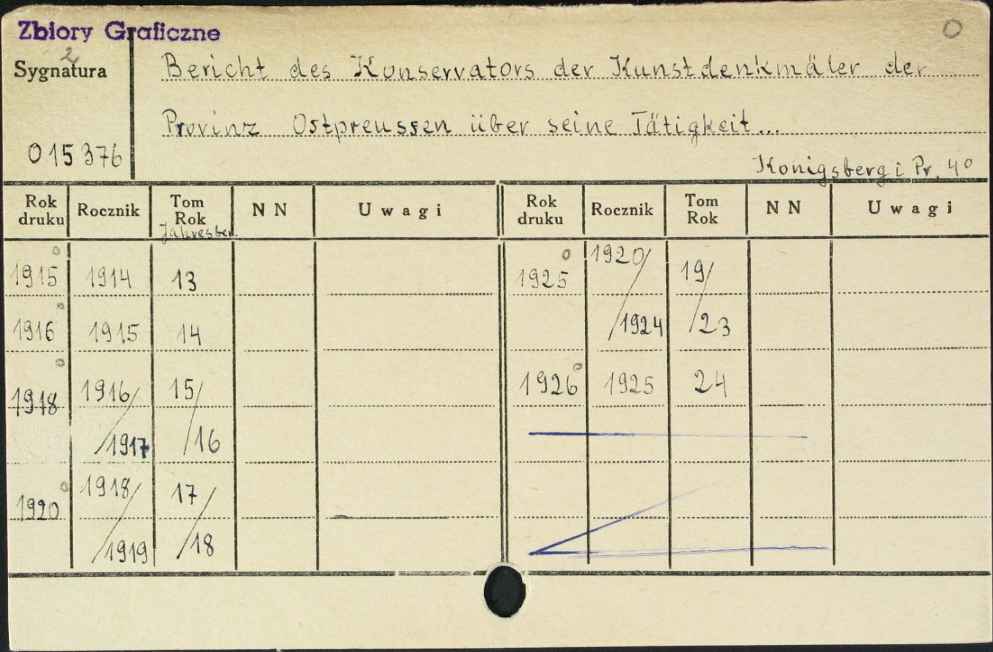 Zbiory Graficzne
2
Sygnatura
015376
Bericht des Konservators der Kunstdenkmäler der
Provinz Ostpreussen über seine Tätigkeit...
Königsberg i Pr, 4°
Rok druku Rocznik Tom Rok NN Uwagi Rok druku Rocznik Tom Rok NN Uwagi
Jahresber.
1915 1914 13
1916 1915 14
1918 1916/1917 15/16
1920 1918/1919 17/18
1925 1920/1924 19/23
1926 1925 24